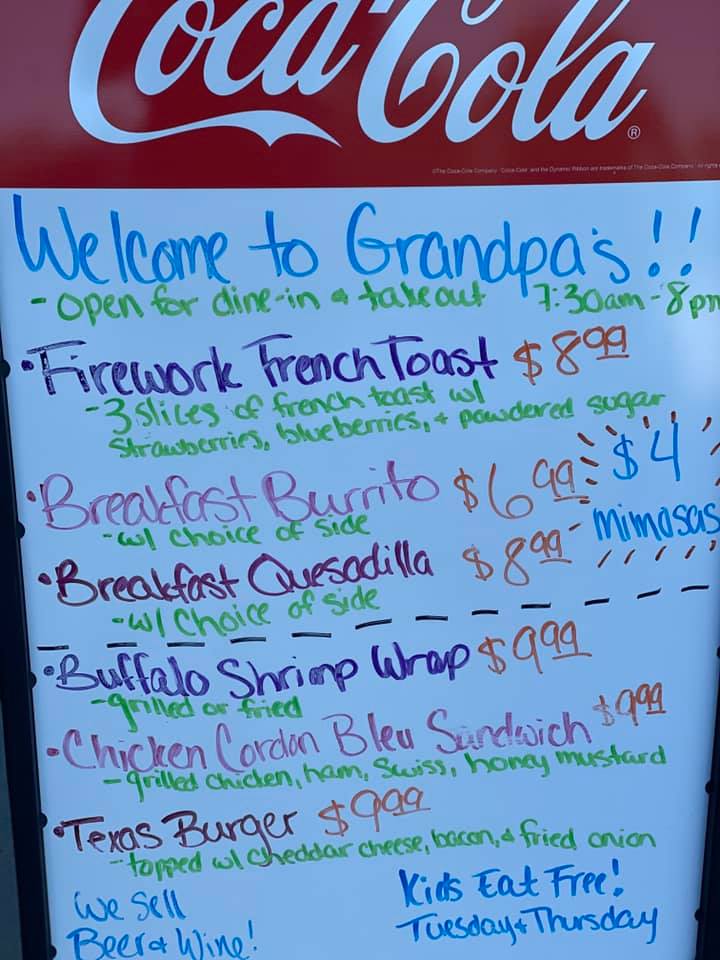 Coca-Cola®
©The Coca-Cola Company. "Coca-Cola" and the Dynamic Ribbon are trademarks of The Coca-Cola Company. All rights
Welcome to Grandpa's!!
- open for dine-in & takeout 7:30am-8pm
• Firework French Toast $8.99
- 3 slices of french toast w/
strawberries, blueberries, + powdered sugar
• Breakfast Burrito $6.99
- w/ choice of side
$4
mimosas
• Breakfast Quesadilla $8.99
- w/ choice of side
• Buffalo Shrimp Wrap $9.99
- grilled or fried
• Chicken Cordon Bleu Sandwich $9.99
- grilled chicken, ham, Swiss, honey mustard
• Texas Burger $9.99
- topped w/ cheddar cheese, bacon, & fried onion
We Sell
Beer & Wine!
Kids Eat Free!
Tuesday + Thursday